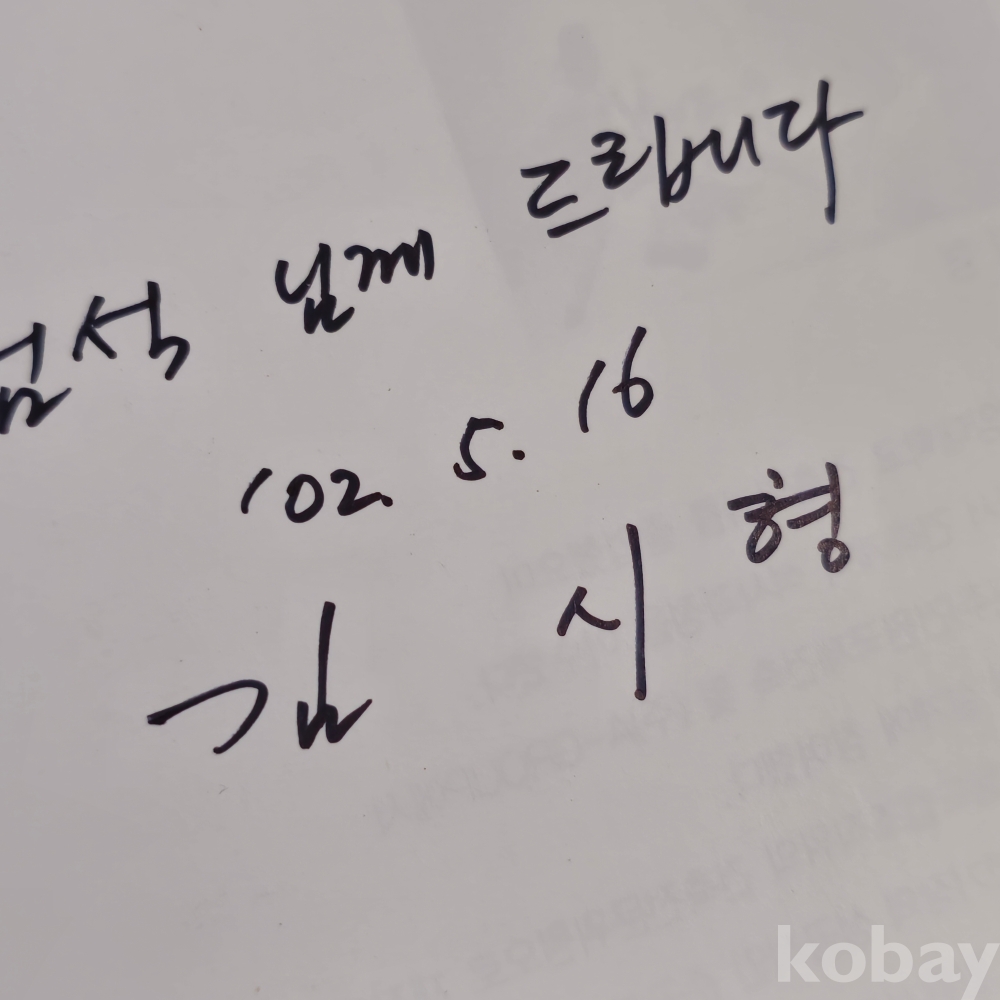 석 님께 드립니다
'02. 5. 16
김 시형
kobay